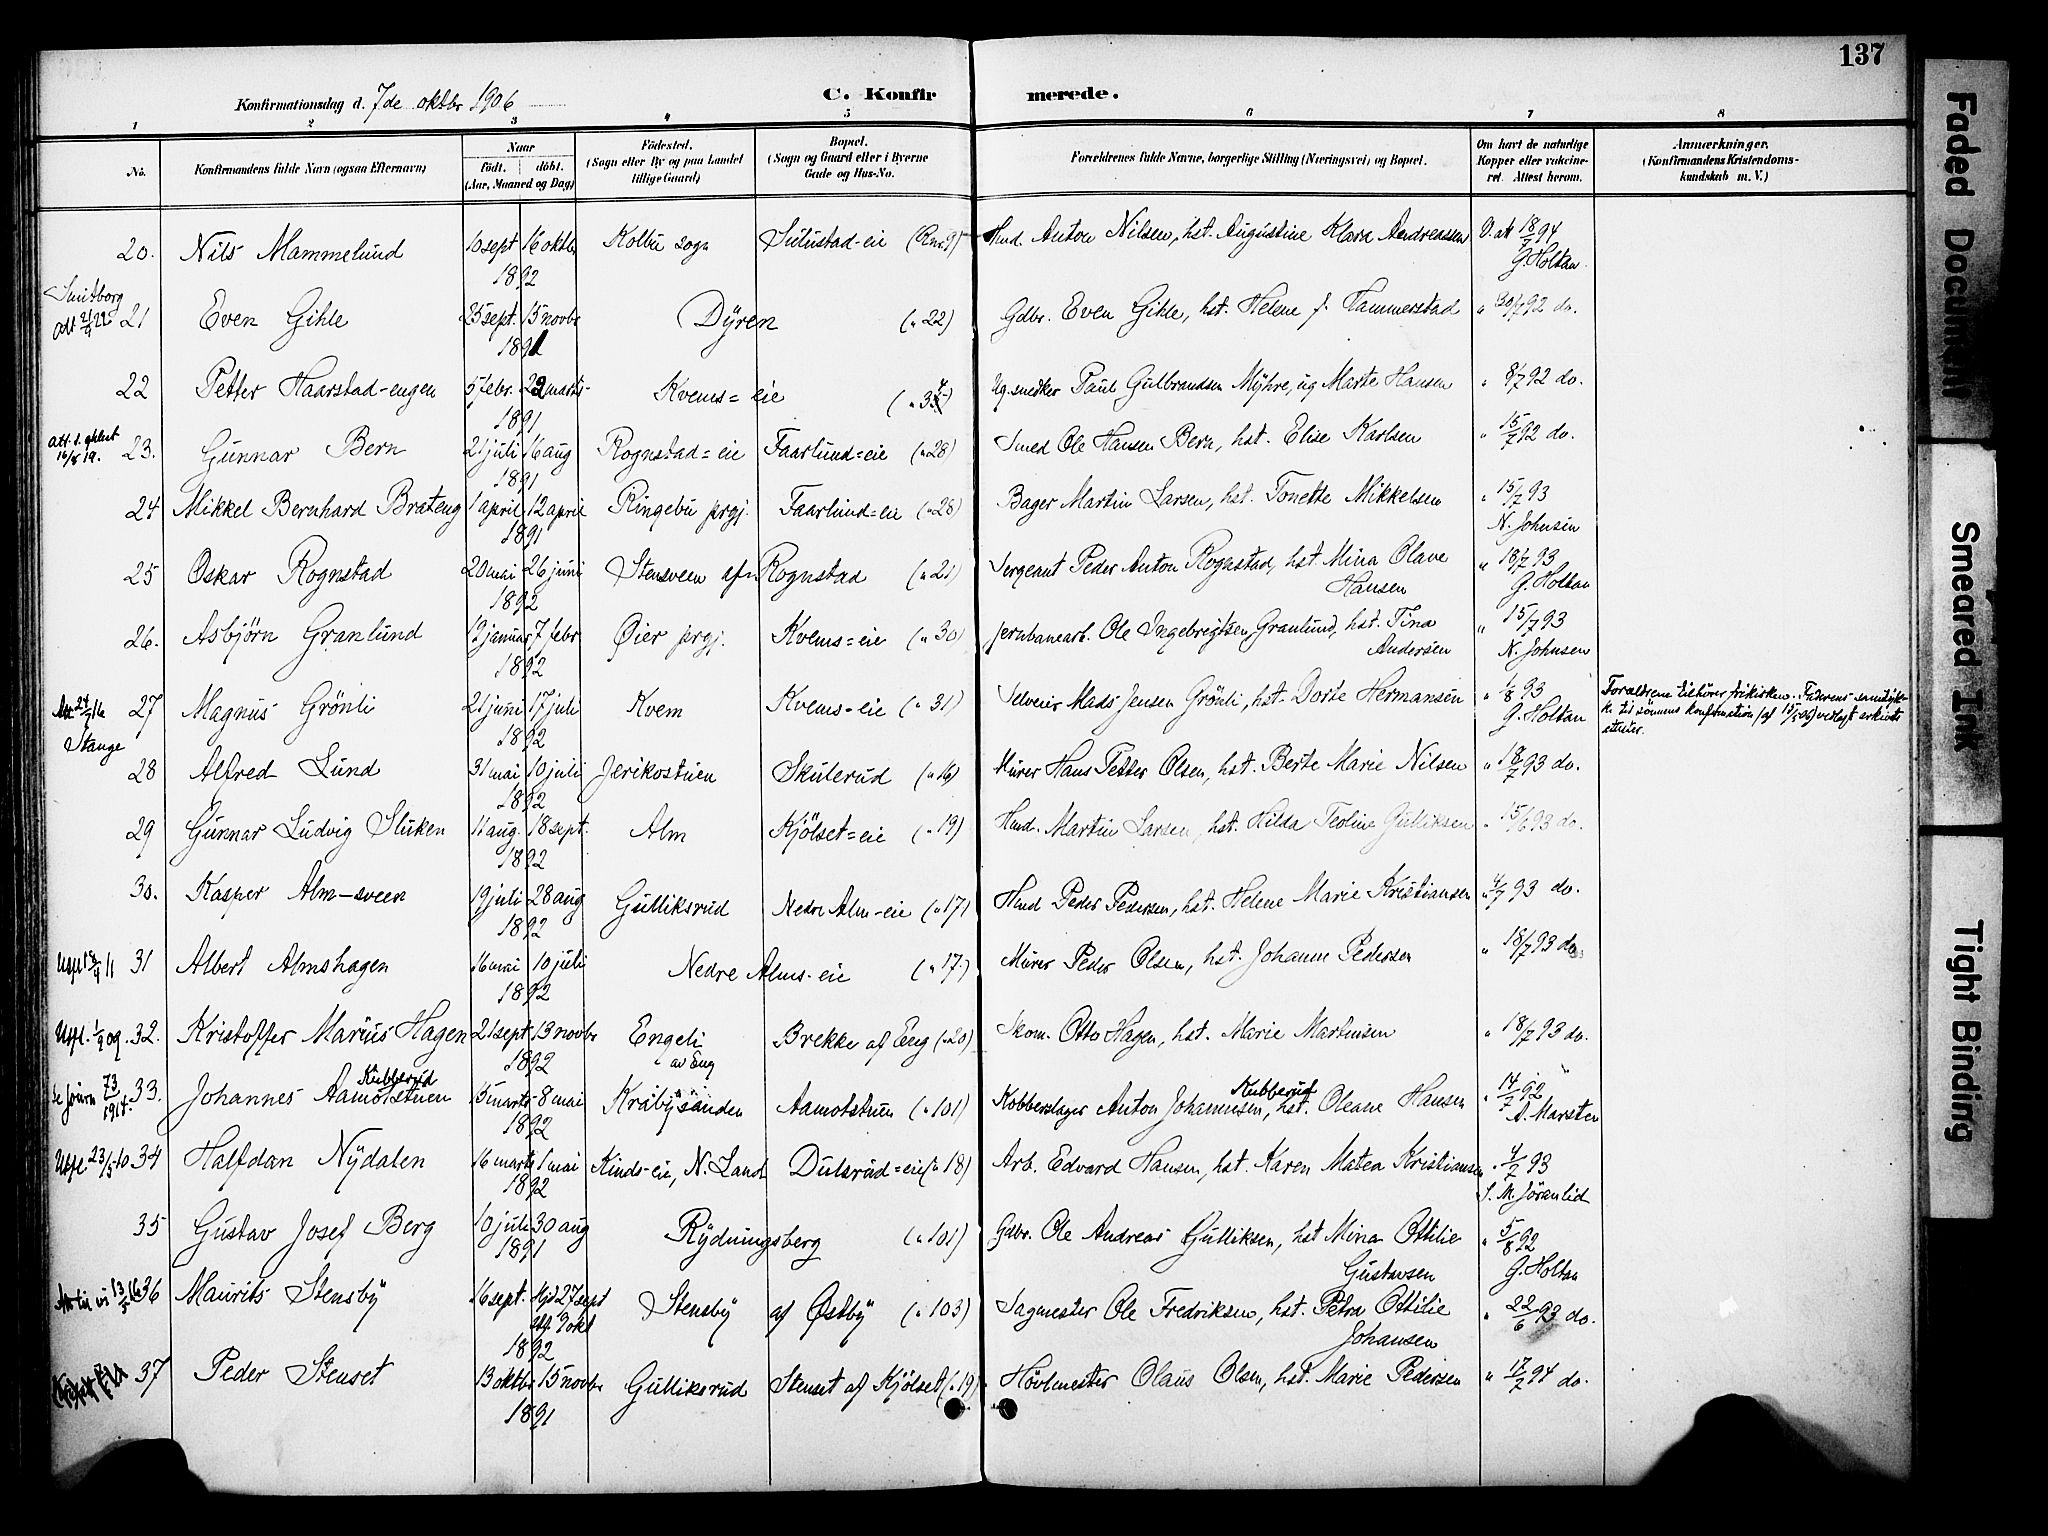 137
Konfirmationsdag d. 7de oktbr 1906
C. Konfirmerede.
1 2 3 4 5 6 7 8
No. Konfirmandens fulde Navn (ogsaa Efternavn) Naar Födt. döbt. (Aar, Maaned og Dag) Födested. (Sogn eller By og paa Landet tillige Gaard) Bopæl. (Sogn og Gaard eller i Byerne Gade og Hus-No. Forældrenes fulde Navne, borgerlige Stilling (Næringsvei) og Bopæl. Om havt de naturlige Kopper eller vaccineret. Attest herom. Anmærkninger. (Konfirmandens Kristendomskundskab m. V.)
20. Nils Mammelund 10 sept 16 oktbr 1892 Kolbu sogn Sivlustad-eie (Rnr. 9) Hmd. Anton Nilsen, hst. Augustine Klara Andreassen V. att 18/7 94 G. Holtan
21 Even Gihle 25 sept. 15 novbr 1891 Dyren („ 22) Gdbr. Even Gihle, hst. Helene f. Hammerstad „ 30/7 92 do.
22 Petter Haarstad-engen 5 febr. 22 marts 1891 Kvems=eie Ug. snedker Paul Gulbrandsen Myhre, ug Marte Hansen „ 8/7 92 do.
23. Gunnar Bern 21 juli 16 aug 1891 Rognstad=eie Faarlund=eie („ 28) Smed Ole Hansen Bern, hst. Elise Karlsen „ 15/7 92 do.
24 Mikkel Bernhard Brateng 1 april 12 april 1891 Ringebu prgj. Faarlund=eie („ 28) Bager Martin Larsen, hst. Tonette Mikkelsen „ 15/7 93 N. Johnsen
25 Oskar Rognstad 20 mai 26 juni 1892 Stensveen af Rognstad („ 21) Sergeant Peder Anton Rognstad, hst. Mina Olave Hansen „ 18/7 93 G. Holtan
26. Asbjörn Granlund 12 januar 7 febr. 1892 Øier prgj. Kvems=eie („ 30) Jernbanearb. Ole Ingebrigtsen Granlund, hst. Tina Andersen „ 15/7 93 N. Johnsen
Stange
27 Magnus Grönli 21 juni 17 juli 1892 Kvem Kvems-eie („ 31) Selveier Mads Jensen Grönli, hst. Dorte Hermansen „ 1/8 93 G. Holtan Forældrene tilhörer frikirken. Faderens samtykke til sönnens konfirmation (af 15/5 06) vedlagt arkivets
28 Alfred Lund 31 mai 10 juli 1892 Jerikostuen Skulerud („ 16) Murer Hans Petter Olsen, hst. Berte Marie Nilsen „ 18/7 93 do.
29 Gunnar Ludvig Sluken 11 aug. 18 sept. 1892 Alm Kjölset=eie („ 19) Hmd. Martin Larsen, hst. Hilda Teoline Gulliksen „ 15/6 93 do.
30. Kasper Alm-sveen 19 juli 28 aug 1892 Gulliksrud Nedre Alm-eie („ 17) Hmd Peder Pedersen, hst. Helene Marie Kristiansen „ 4/7 93 do.
31 Albert Almshagen 16 mai 10 juli 1892 Nedre Alms-eie („ 17.) Murer Peder Olsen, hst. Johanne Pedersen „ 18/7 93 do.
32. Kristoffer Marius Hagen 21 sept 13 novbr 1892 Engeli av Eng Brekke af Eng („ 20) Skom. Otto Hagen, hst. Marie Martinsen „ 18/7 93 do.
33. Johannes Aamotstuen Kubberud 15 marts 8 mai 1892 Kråbysanden Aamotstuen („ 101) Kobberslager Anton Johannesen, Kubberud hst. Oleane Hansen „ 14/7 92 A. Marsten
Utfl. 23/5 10 34 Halfdan Nydalen 16 marts 1 mai 1892 Kinds-eie, N. Land Dulsrud=eie („ 18) Arb. Edvard Hansen, hst. Karen Matea Kristiansen „ 4/7 93 S. M. Jöranlid
35 Gustav Josef Berg 10 juli 30 aug 1891 Rydningsberg („ 101) Gdbr. Ole Andreas Gulliksen, hst Mina Ottilie Gustavsen „ 5/8 92 G. Holtan
36 Maurits Stensby 16 sept. hjd 27 sept stf. 9 okt 1892 Stensby af Østby („ 103) Sagmester Ole Fredriksen, hst. Petra Ottilie Johansen „ 22/6 93 do.
37 Peder Stenset 13 oktbr 15 novbr 1891 Gulliksrud Stenset af Kjölset („ 19) Hövlmester Olaus Olsen, hst. Marie Pedersen „ 17/7 94 do.
Faded Document
Smeared Ink
Tight Binding